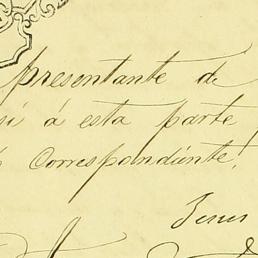 presentante de
si á esta parte
Correspondiente!